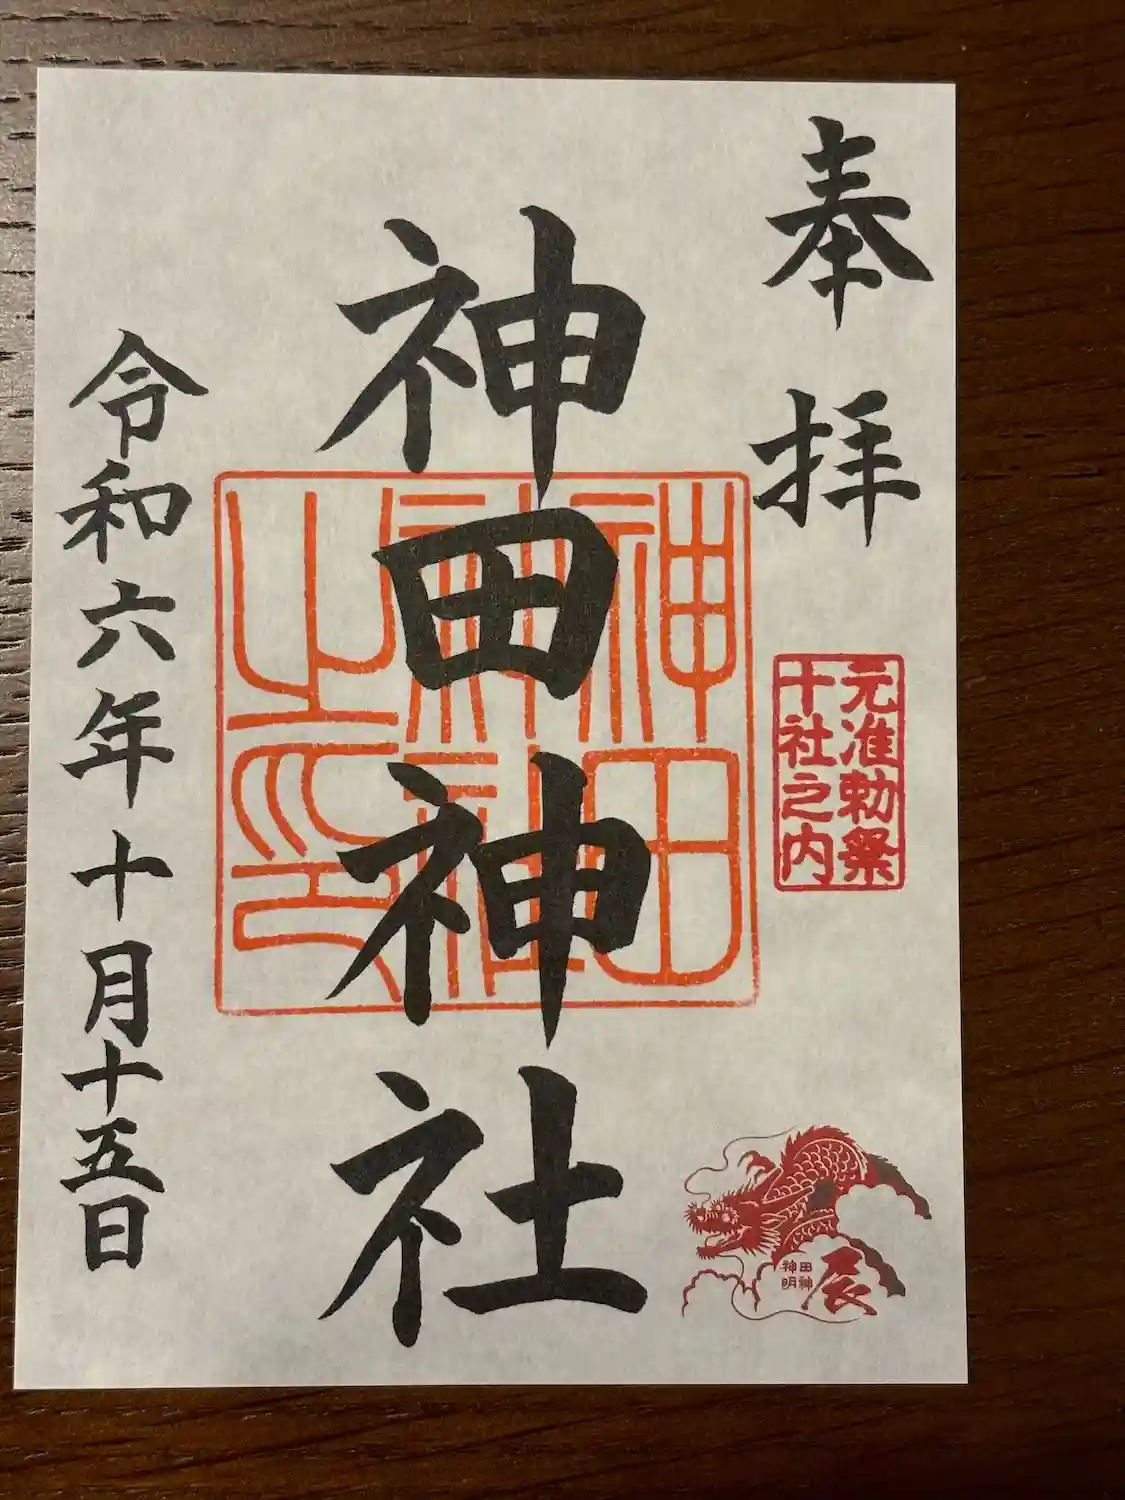 奉拝
元准勅祭
十社之内
神田神社
神田
神社
之印
令和六年十月十五日
辰
田神
神明